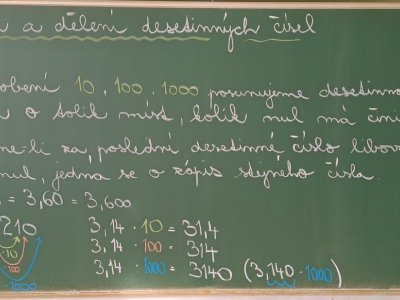 a dělení desetinných čísel
násobení 10, 100, 1000 posunujeme desetinnou
o tolik míst, kolik nul má čini
me-li za poslední desetinné číslo libovo
nul, jedná se o zápis stejného čísla.
= 3,60 = 3,600
210
·10
·100
·1000
3,14 · 10 = 31,4
3,14 · 100 = 314
3,14 · 1000 = 3140 (3,140 · 1000)